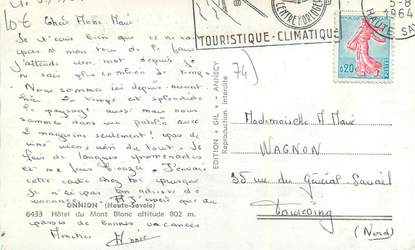 10€
Chère Marie-Marie
Je t'écris bien que ce ne soit
pas mon tour de le faire
J'attends un mot depuis je
ne sais plus combien de temps
Nous sommes ici depuis
Le temps est splendide
le paysage aussi mais nous
sommes dans un patelin avec
2 magasins seulement! pas de
rien du tout. Je
fais de longues promenades
et me fais bronzer. J'envoie
cette carte chez toi puisque
je n'ai pas ton adresse de
vacances
ONNION (Haute-Savoie)
6433 Hôtel du Mont Blanc altitude 802 m.
passes de bonnes vacances
Annie
EDITION "GIL" - ANNECY
Reproduction Interdite
CENTRE
TOURISTIQUE-CLIMATIQUE
5-8
1964
HAUTE SAV
0,20
74)
Mademoiselle M Marie
WAGNON
35 rue du Général-Sarrail
Tourcoing
(Nord)